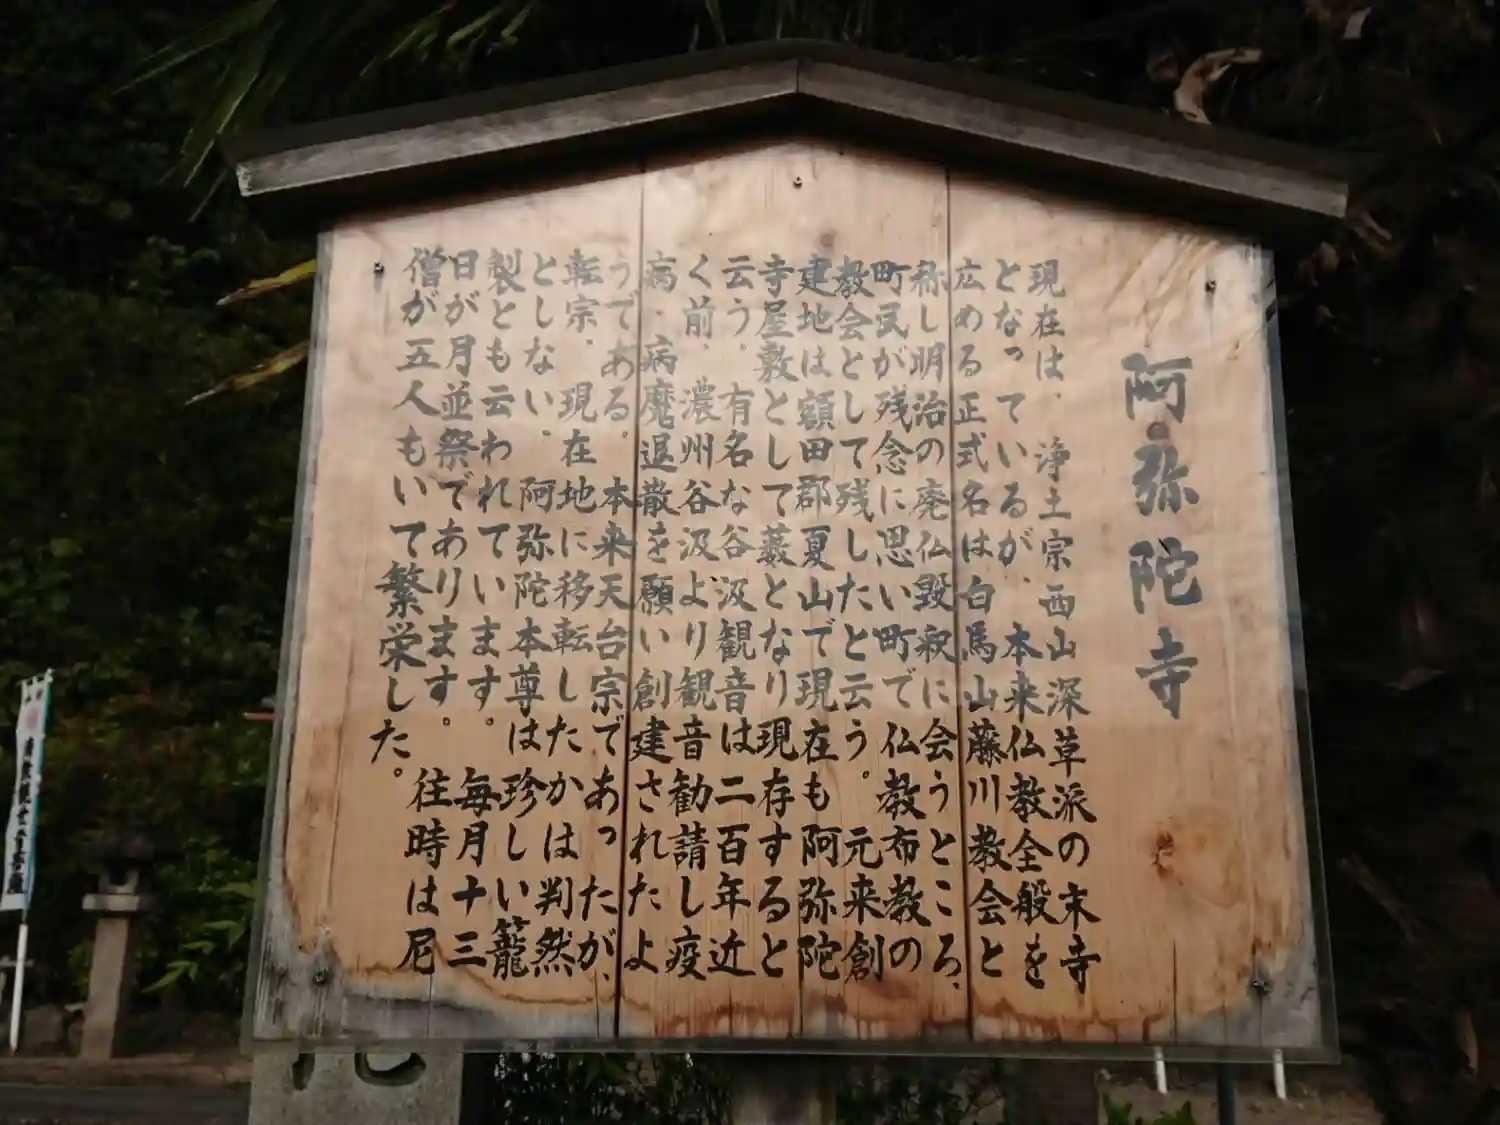 阿弥陀寺
現在は、浄土宗西山深草派の末寺
となっているが、本来仏教全般を
広める正式名は白馬山藤川教会と
称し明治の廃仏毀釈に会うところ、
町民が残念に思い町で仏教布教の
教会として残したと云う。元来創
建地は額田郡夏山で現在も阿弥陀
寺屋敷として藪となり現存すると
云う、有名な谷汲観音は二百年近
く前、濃州谷汲より観音勧請し疫
病・病魔退散を願い創建されたよ
うである。本来天台宗であったが、
転宗、現在地に移転したかは判然
としない、阿弥陀本尊は珍しい籠
製とも云われています。毎月十三
日が月並祭であります。往時は尼
僧が五人もいて繁栄した。